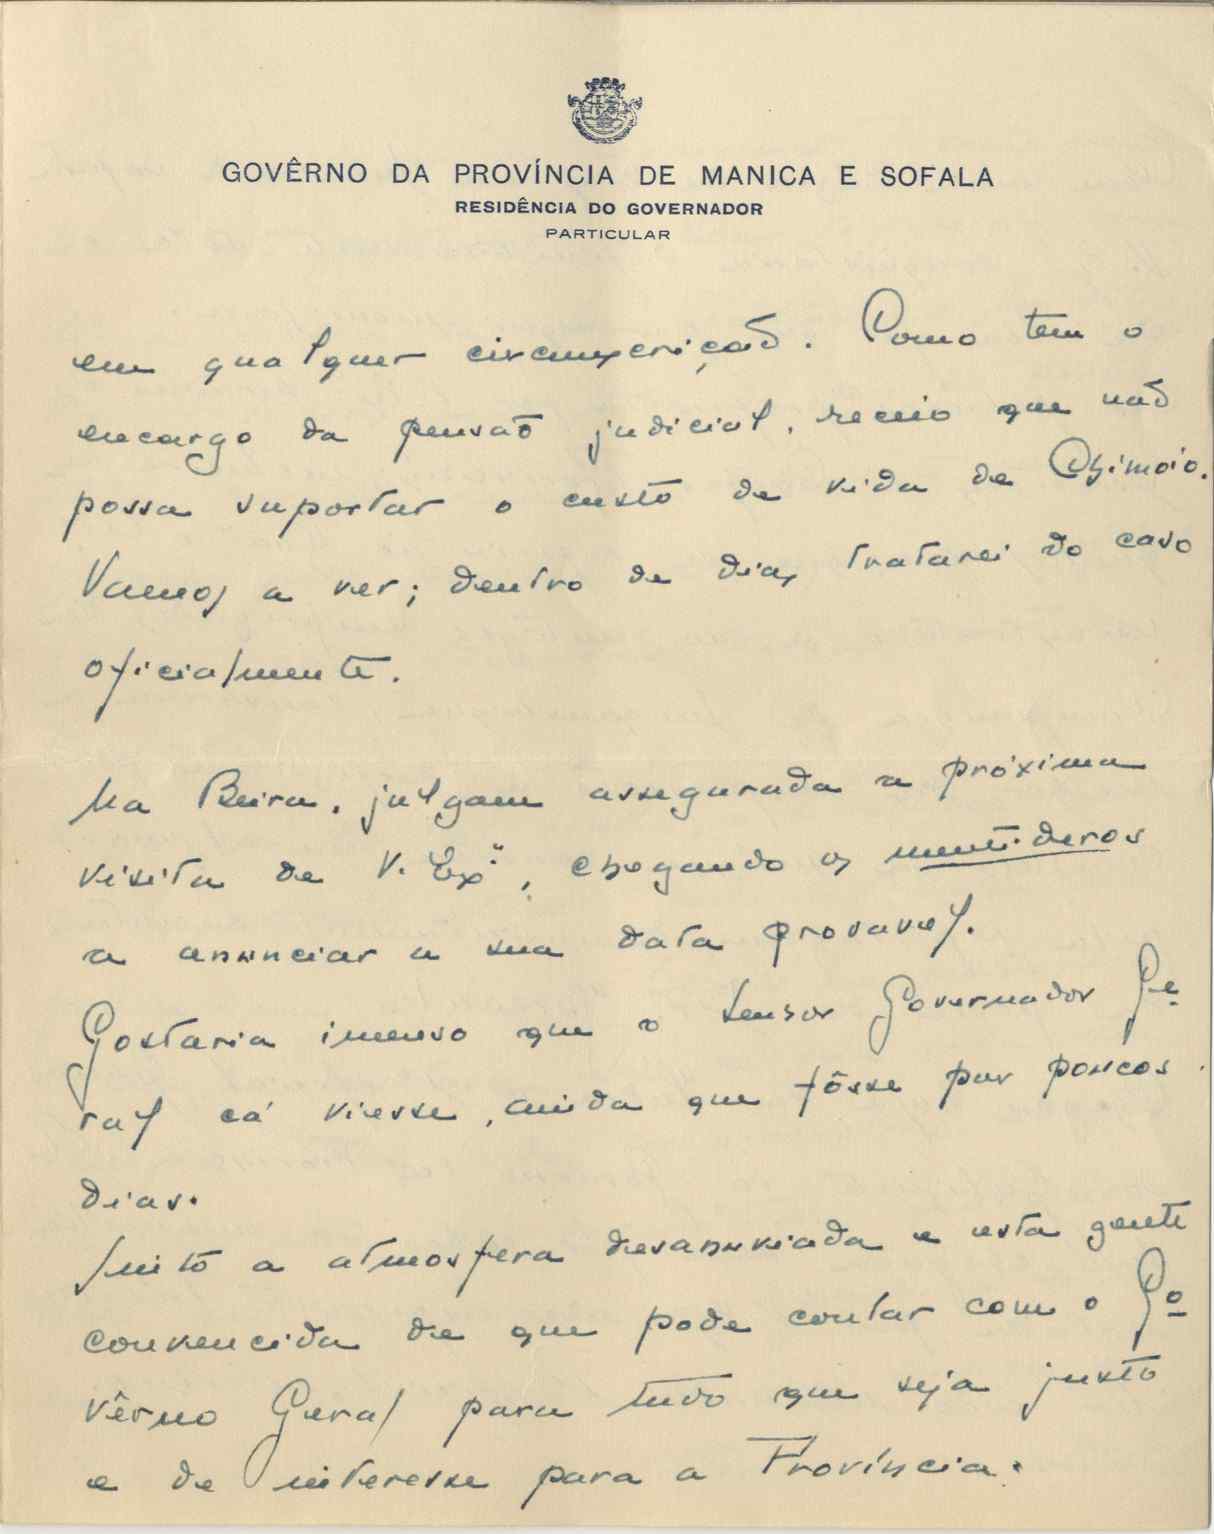 GOVÊRNO DA PROVÍNCIA DE MANICA E SOFALA
RESIDÊNCIA DO GOVERNADOR
PARTICULAR
em qualquer circunscrição. Como tem o
encargo da pensão judicial, receio que não
possa suportar o custo de vida de Chimoio.
Vamos a ver; dentro de dias tratarei do caso
oficialmente.
Na Beira, julgam assegurada a próxima
visita de V. Exª, chegando os mentideros
a anunciar a sua data provavel.
Gostaria imenso que o Senhor Governador Ge-
ral cá viesse, ainda que fôsse por poucos
dias.
Sinto a atmosfera desanuviada e esta gente
convencida de que pode contar com o Go-
vêrno Geral para tudo que seja justo
e de interesse para a Província.